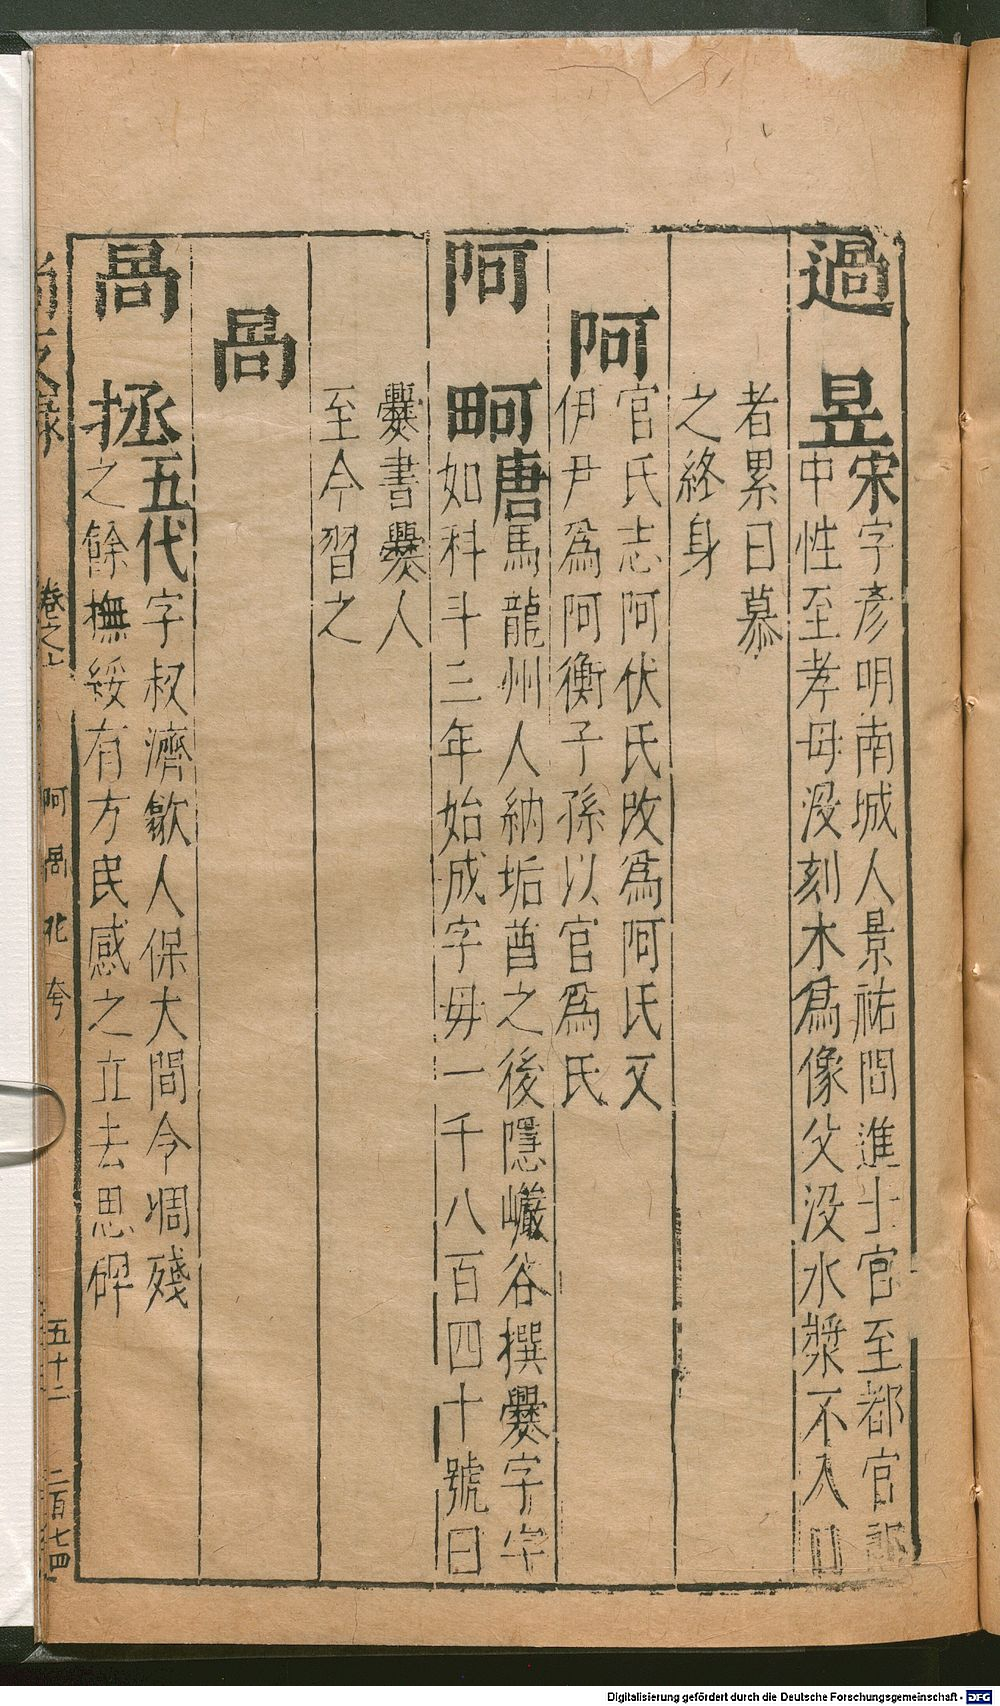 過昱宋字彥明南城人景祐間進士官至都官郎
中性至孝母没刻木爲像父没水漿不入口
者累日慕
之終身
阿
官氏志阿伏氏改爲阿氏又
伊尹爲阿衡子孫以官爲氏
阿𤰕唐馬龍州人納垢酋之後隱巗谷撰爨字字
如科斗三年始成字毋一千八百四十號曰
爨書爨人
至今習之
咼
咼拯五代字叔濟歙人保大間令凋殘
之餘撫綏有方民感之立去思碑
尚友錄
卷之七
阿咼花夸
五十二
二百七四
Digitalisierung gefördert durch die Deutsche Forschungsgemeinschaft - DFG